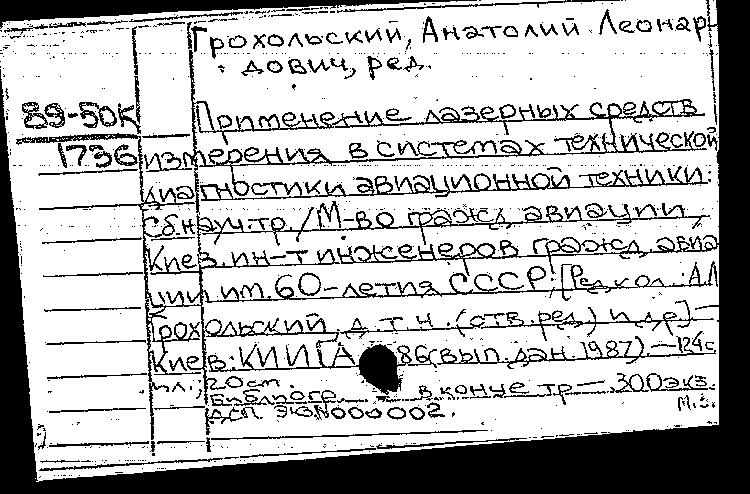 Грохольский, Анатолий Леонар-
дович, ред.
89-50К Применение лазерных средств
1736 измерения в системах технической
диагностики авиационной техники:
Сб. науч. тр. / М-во гражд. авиации,
Киев. ин-т инженеров гражд. авиа
ции им. 60-летия СССР; [Редкол.: А.Л.
Грохольский, д.т.н. (отв. ред.) и др]. —
Киев: КИИГА 86 (вып. дан. 1987). — 124с
ил.; 20 см.
Библиогр. в конце тр — 300 экз.
ДСП. Экз N000002.